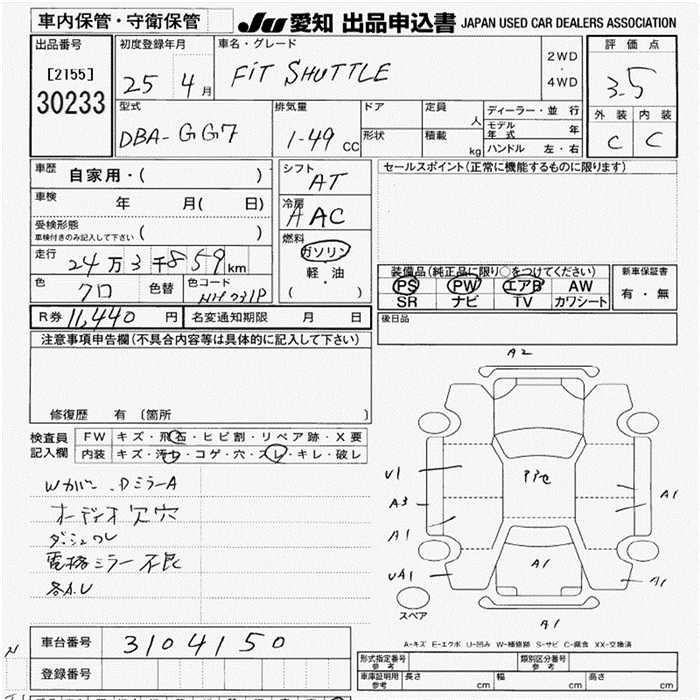 車内保管・守衛保管
JU 愛知 出品申込書 JAPAN USED CAR DEALERS ASSOCIATION
出品番号
[2155]
30233
初度登録年月
25 4月
車名・グレード
FiT SHUTTLE
2WD
・
4WD
評価点
3.5
外装 内装
C C
型式
DBA-GG7
排気量
1-49 CC
ドア
形状
定員
人
積載
kg
ディーラー・並行
モデル年式 年
ハンドル 左・右
車歴 自家用・( )
車検 年 月( 日)
受検形態
車検付きのみ記入して下さい ( )
走行
24万3千859km
色 クロ 色替 色コード
シフト
AT
冷房
AAC
燃料
ガソリン
軽・油
( )
セールスポイント(正常に機能するものに限ります)
装備品(純正品に限り○をつけてください)
PS PW エアB AW
SR ナビ TV カワシート
新車保証書
有・無
R券 11,440 円 名変通知期限 月 日
後日品
注意事項申告欄(不具合内容等は具体的に記入して下さい)
修復歴 有 〔箇所 〕
検査員記入欄
FW キズ・飛石・ヒビ割・リペア跡・X要
内装 キズ・汚れ・コゲ・穴・スレ・キレ・破レ
Wカバー、DミラーA
オーディオ欠穴
電格ミラー不良
各A.U
A2
U1
A3
A1
UA1
A1
A1
A1
A1
スペア
A-キズ E-エクボ U-凹み W-補修跡 S-サビ C-腐食 XX-交換済
車台番号 3104150
登録番号
形式指定番号
参考
類別区分番号
参考
車庫証明用
参考
長さ cm 幅 cm 高さ cm